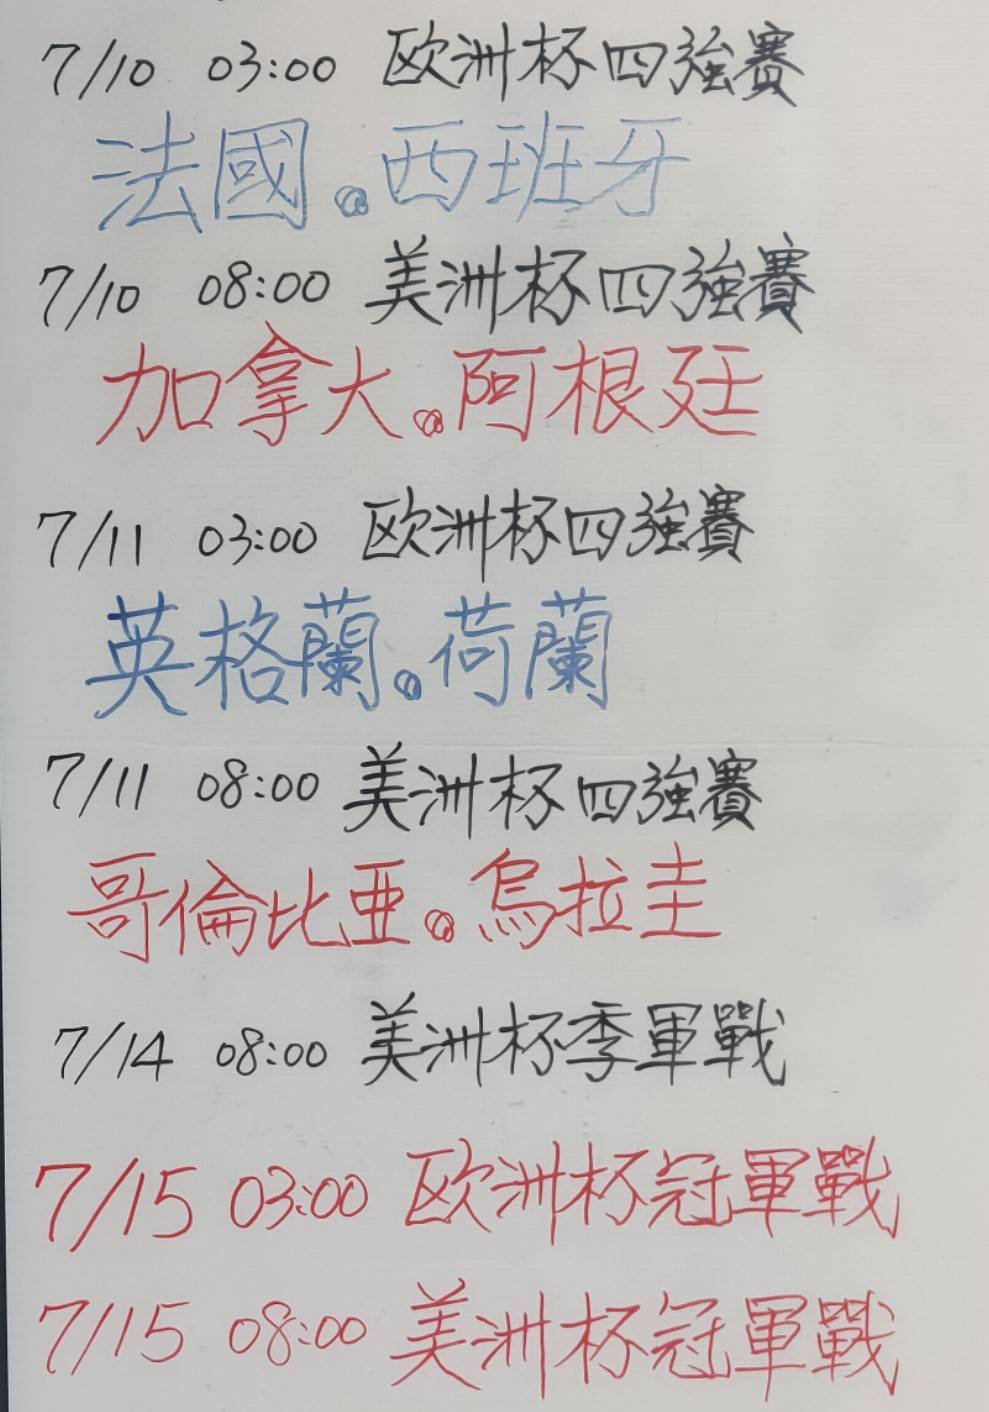 7/10 03:00 欧洲杯四強賽
法國。西班牙
7/10 08:00 美洲杯四強賽
加拿大。阿根廷
7/11 03:00 欧洲杯四強賽
英格蘭。荷蘭
7/11 08:00 美洲杯四強賽
哥倫比亜。烏拉圭
7/14 08:00 美洲杯季軍戰
7/15 03:00 欧洲杯冠軍戰
7/15 08:00 美洲杯冠軍戰